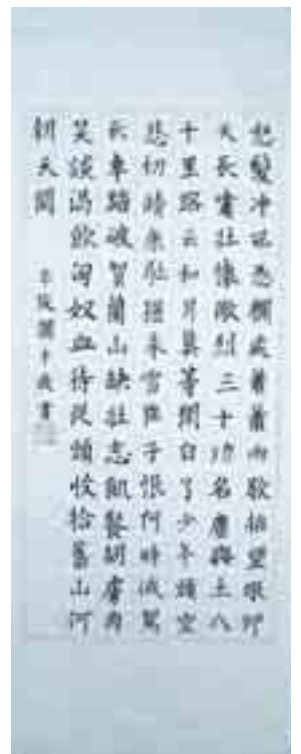 怒髮冲冠憑欄處瀟瀟雨歇抬望眼仰
天長嘯壯懷激烈三十功名塵與土八
千里路云和月莫等閒白了少年頭空
悲切靖康恥猶未雪臣子恨何時滅駕
長車踏破賀蘭山缺壯志飢餐胡虜肉
笑談渴飲匈奴血待從頭收拾舊山河
朝天闕
書